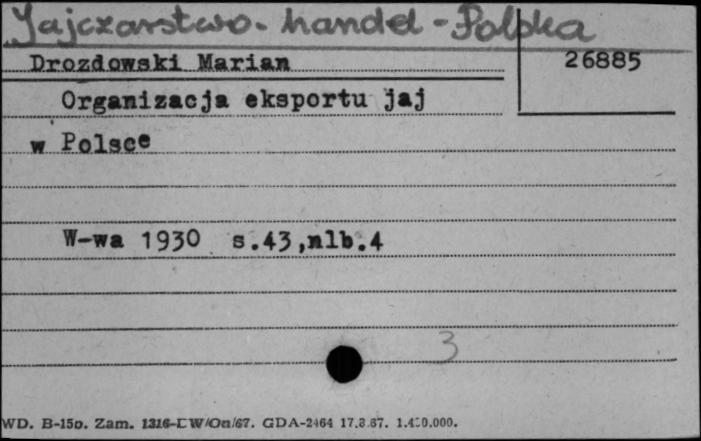 Jajczarstwo - handel - Polska
Drozdowski Marian
26885
Organizacja eksportu jaj
w Polsce
W-wa 1930 s.43,nlb.4
3
WD. B-15o. Zam. GDA-2464 17.3.67.